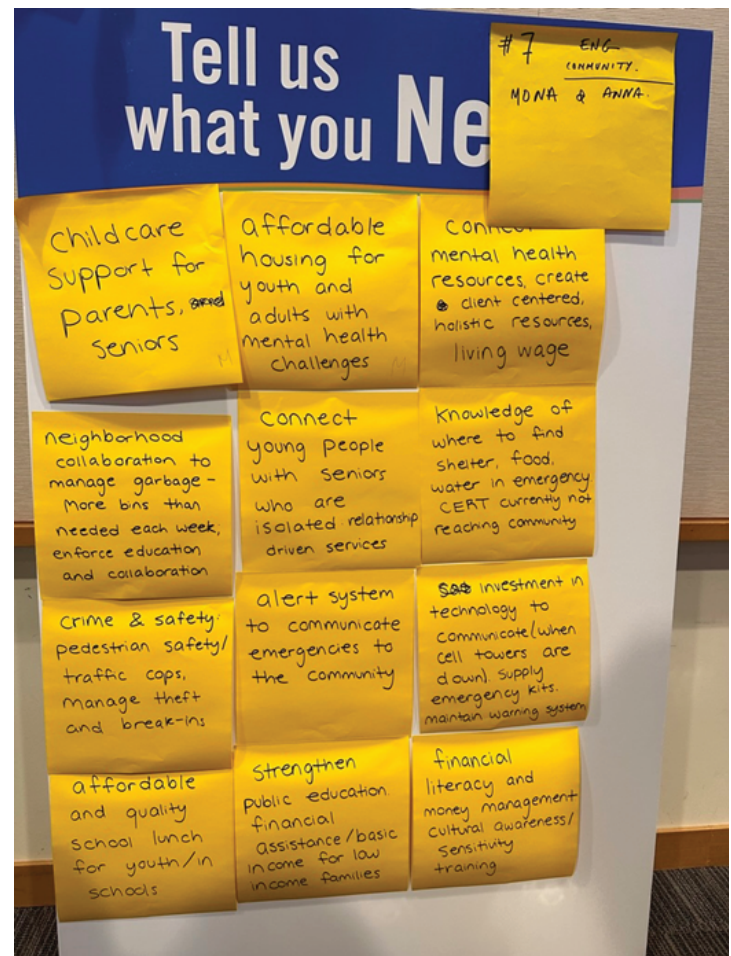 Tell us
what you Ne
#7 ENG
COMMUNITY.
MONA & ANNA.
Childcare
support for
parents,
seniors
M
affordable
housing for
youth and
adults with
mental health
challenges
M
connect
mental health
resources, create
client centered,
holistic resources,
living wage
neighborhood
collaboration to
manage garbage –
More bins than
needed each week,
enforce education
and collaboration
connect
young people
with seniors
who are
isolated relationship
driven services
Knowledge of
where to find
shelter, food,
water in emergency.
CERT currently not
reaching community
crime & safety:
pedestrian safety/
traffic cops,
manage theft
and break-ins
alert system
to communicate
emergencies to
the community
investment in
technology to
communicate (when
cell towers are
down). Supply
emergency kits.
maintain warning system
affordable
and quality
school lunch
for youth/in
schools
strengthen
public education.
financial
assistance/basic
income for low
income families
financial
literacy and
money management
cultural awareness/
sensitivity
training